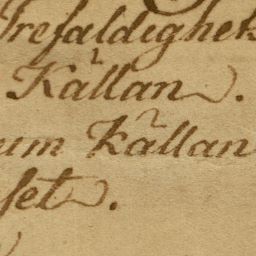 Trefaldighets
Källan.
um Källan
set.